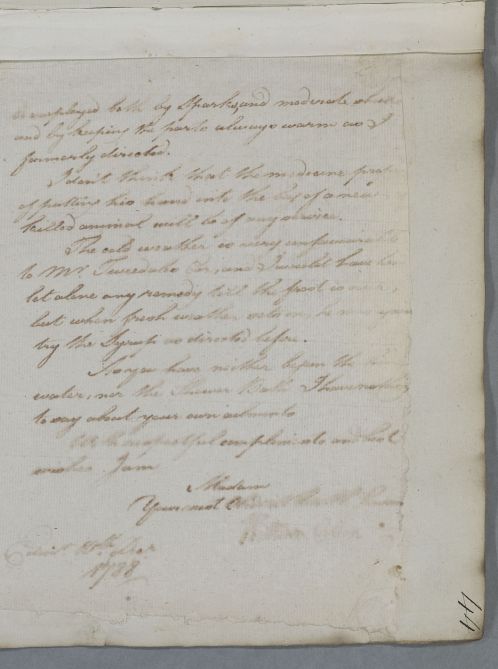 employed both by Sparks, and moderate
and by keeping the parts always warm as I
formerly directed.
I don't think that the medicine
of putting his hand into the of a new
killed animal will be of any service.
The cold weather is very unfavourable
to Mr. Tweedale's Case, and I would have him
let alone any remedy till the frost is over,
but when fresh weather return, he may again
try the Syrup as directed before.
As you have neither begun the
water, nor the Shower Bath I have nothing
to say about your own ailments
With respectful compliments and best
wishes I am
Madam
Your most
William Cullen
1788
44